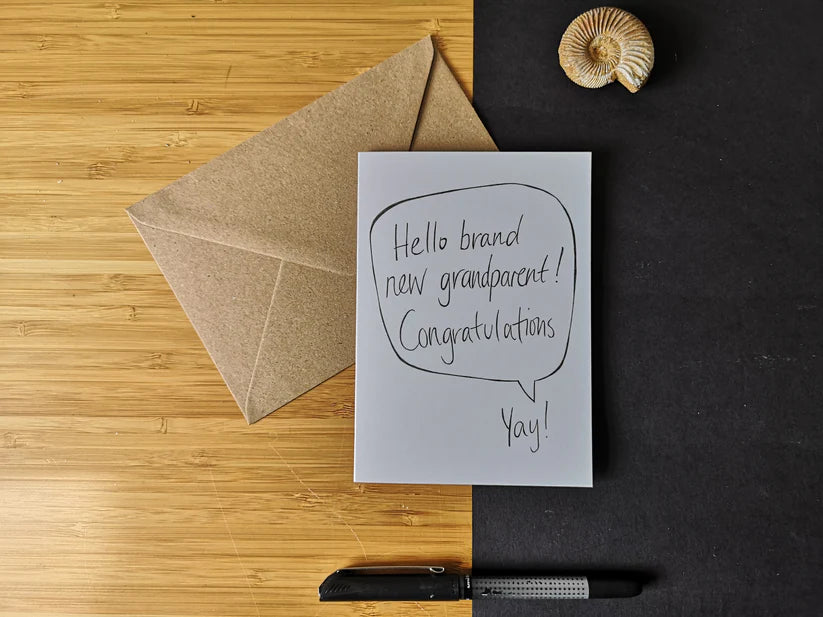 Hello brand
new grandparent!
Congratulations
Yay!